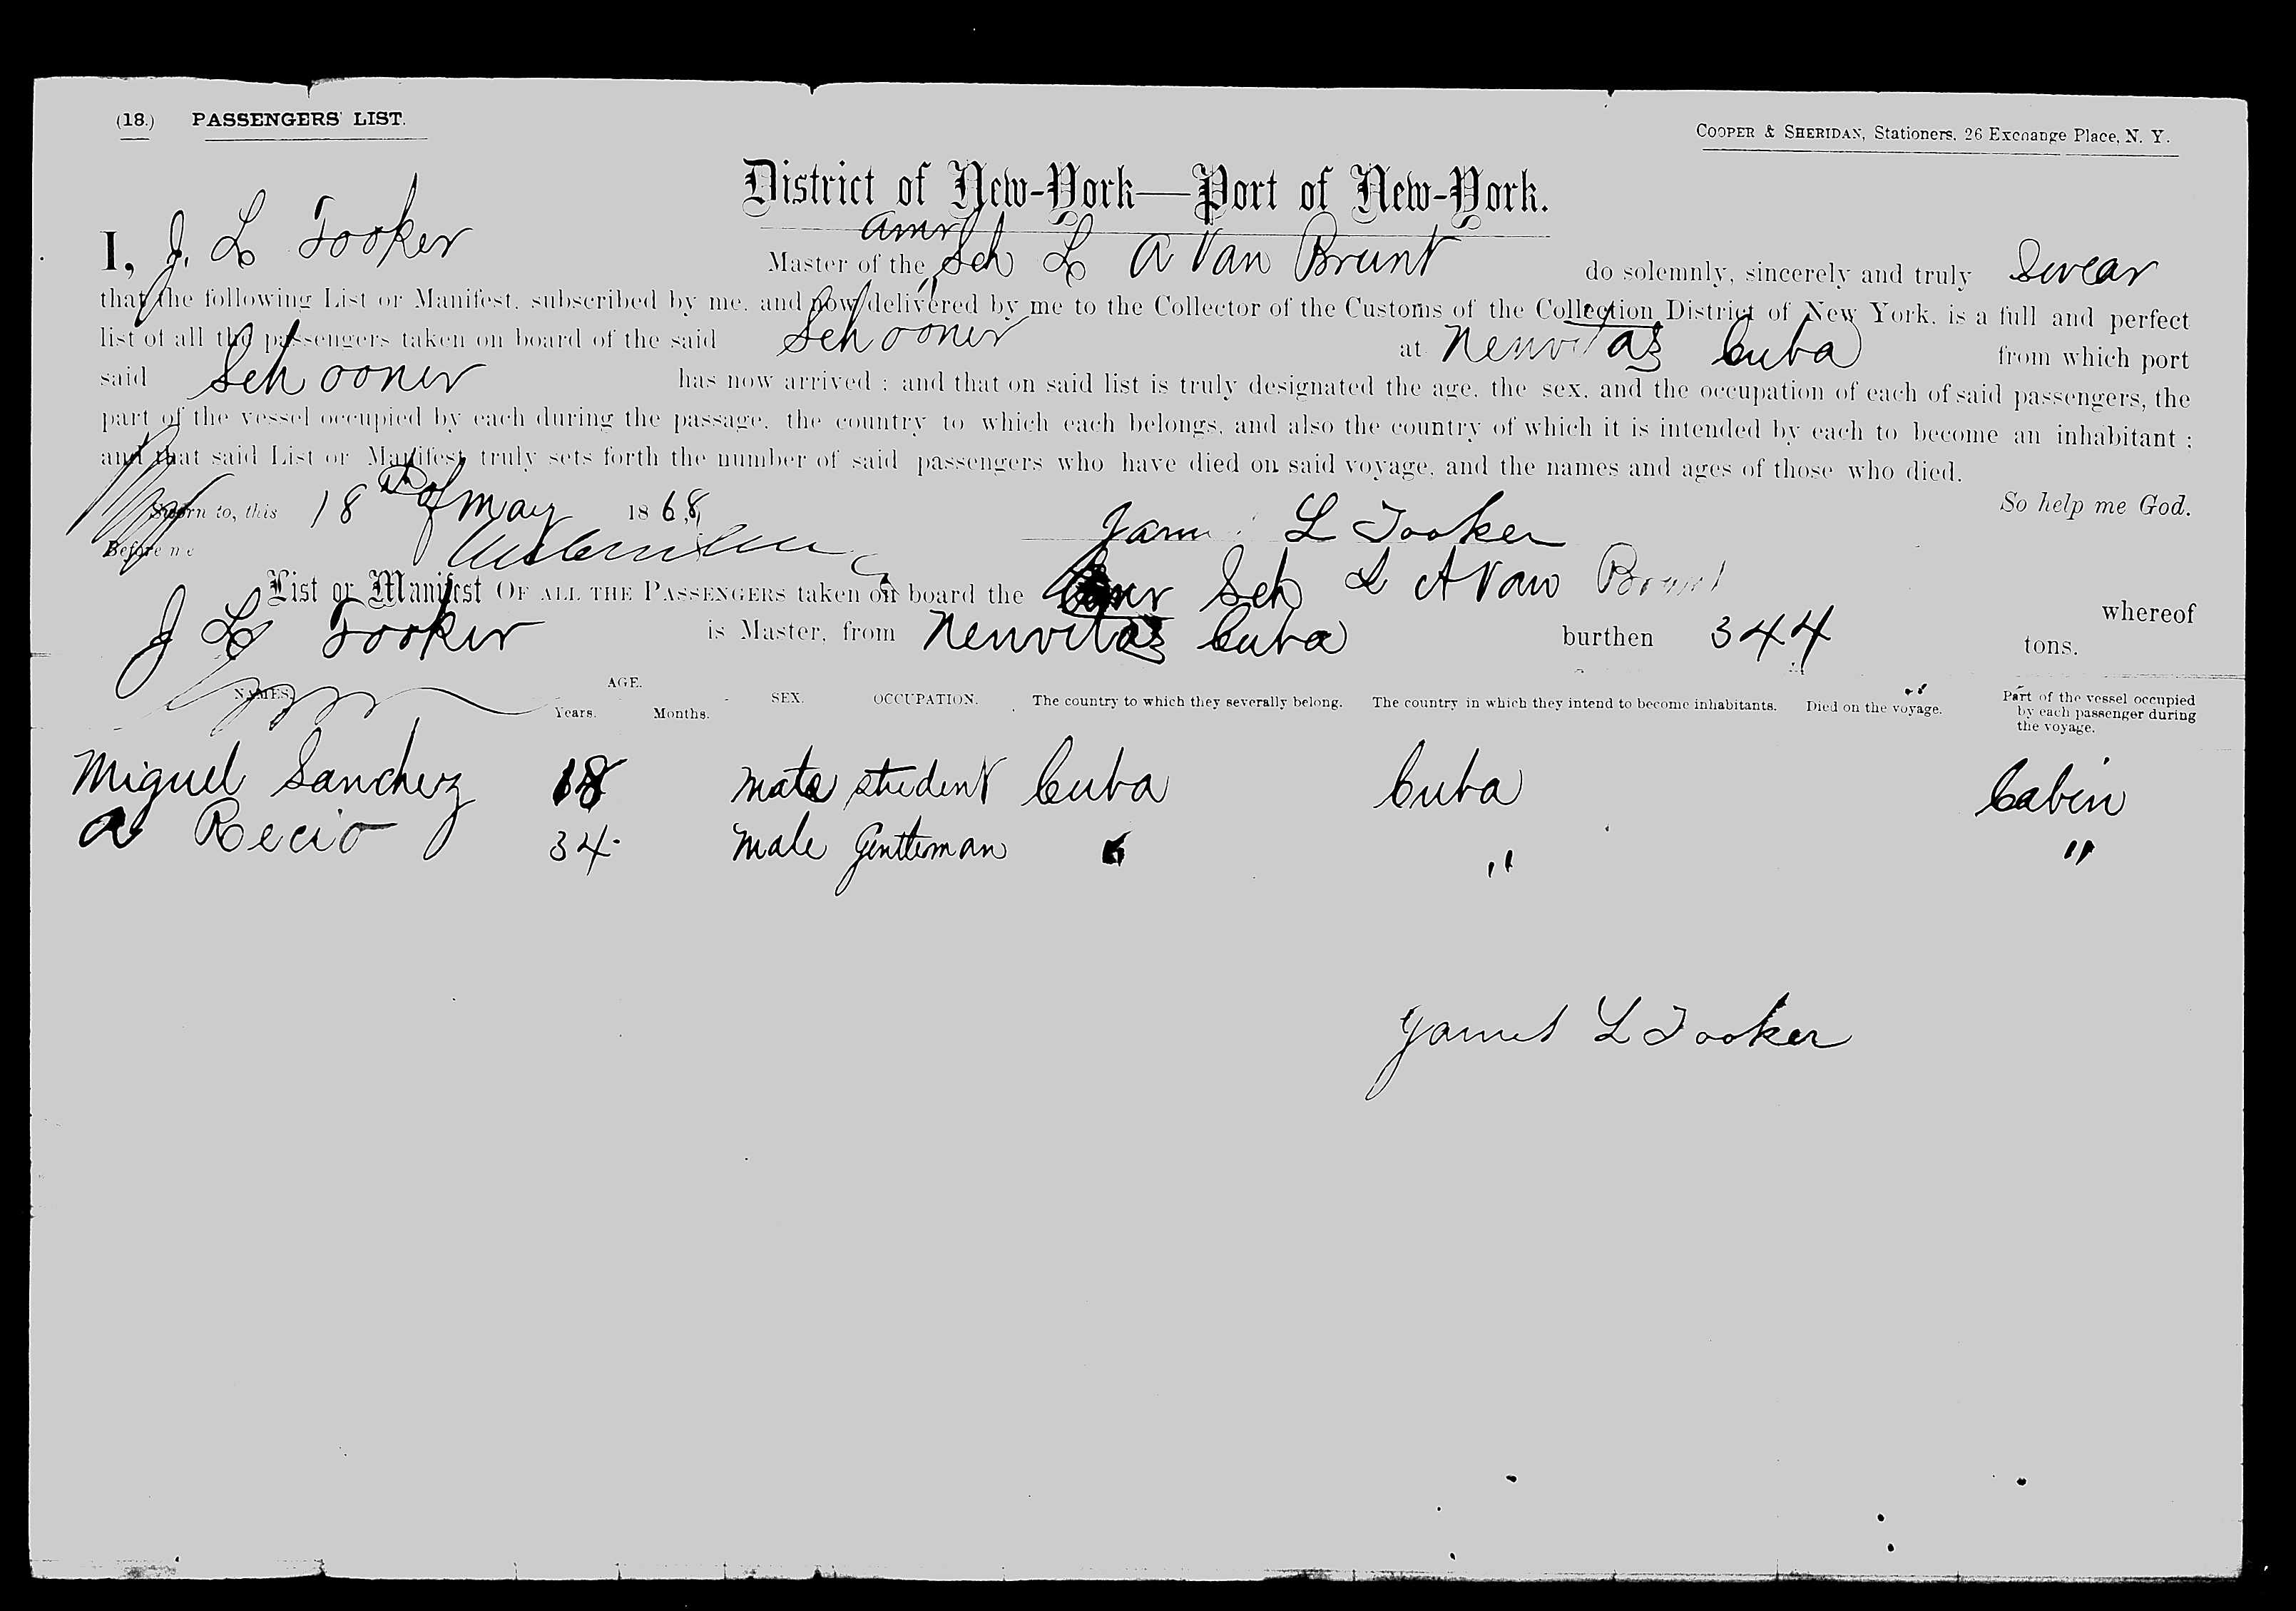 (18.) PASSENGERS' LIST.
COOPER & SHERIDAN, Stationers, 26 Exchange Place, N. Y.
District of New-York—Port of New-York.
I, J. L Tooker Master of the Amr Sch L A Van Brunt do solemnly, sincerely and truly Swear
that the following List or Manifest, subscribed by me, and now delivered by me to the Collector of the Customs of the Collection District of New York, is a full and perfect
list of all the passengers taken on board of the said Schooner at Neuvitas Cuba from which port
said Schooner has now arrived; and that on said list is truly designated the age, the sex, and the occupation of each of said passengers, the
part of the vessel occupied by each during the passage, the country to which each belongs, and also the country of which it is intended by each to become an inhabitant;
and that said List or Manifest truly sets forth the number of said passengers who have died on said voyage, and the names and ages of those who died.
So help me God.
Sworn to, this 18th of May 1868,
James L Tooker
Before me
List or Manifest OF ALL THE PASSENGERS taken on board the Amr Sch L A Van Brunt whereof
J L Tooker is Master, from Neuvitas Cuba burthen 344 tons.
NAMES. AGE. Years. Months. SEX. OCCUPATION. The country to which they severally belong. The country in which they intend to become inhabitants. Died on the voyage. Part of the vessel occupied by each passenger during the voyage.
Miguel Sanchez 18 Male student Cuba Cuba Cabin
A Recio 34 Male Gentleman " " "
James L Tooker